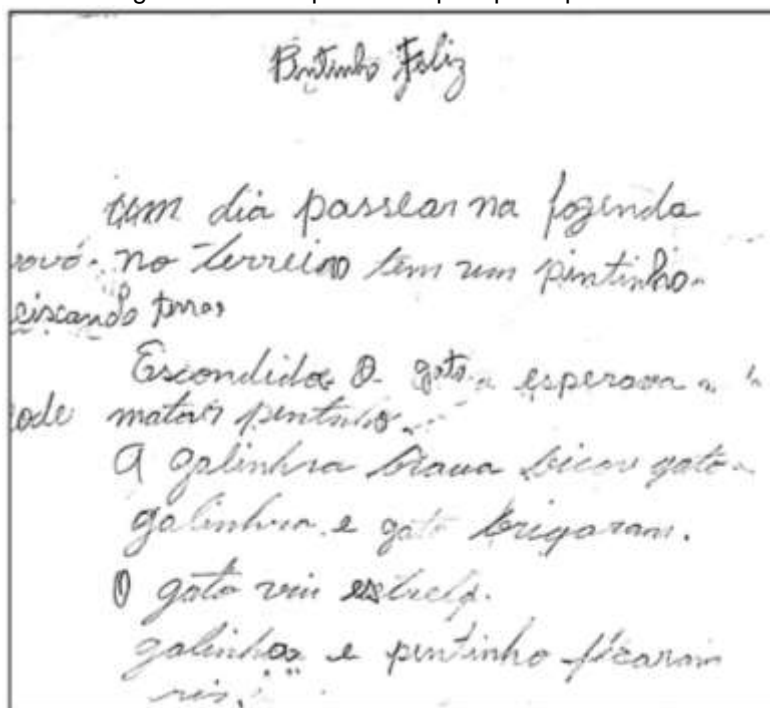 Pintinho Feliz
um dia passear na fazenda
vovó. no terreiro tem um pintinho
ciscando terra
Escondido O gato esperava
pode matar pintinho.
A galinha brava bicou gato
galinha e gato brigaram.
O gato viu estrela.
galinha e pintinho ficaram